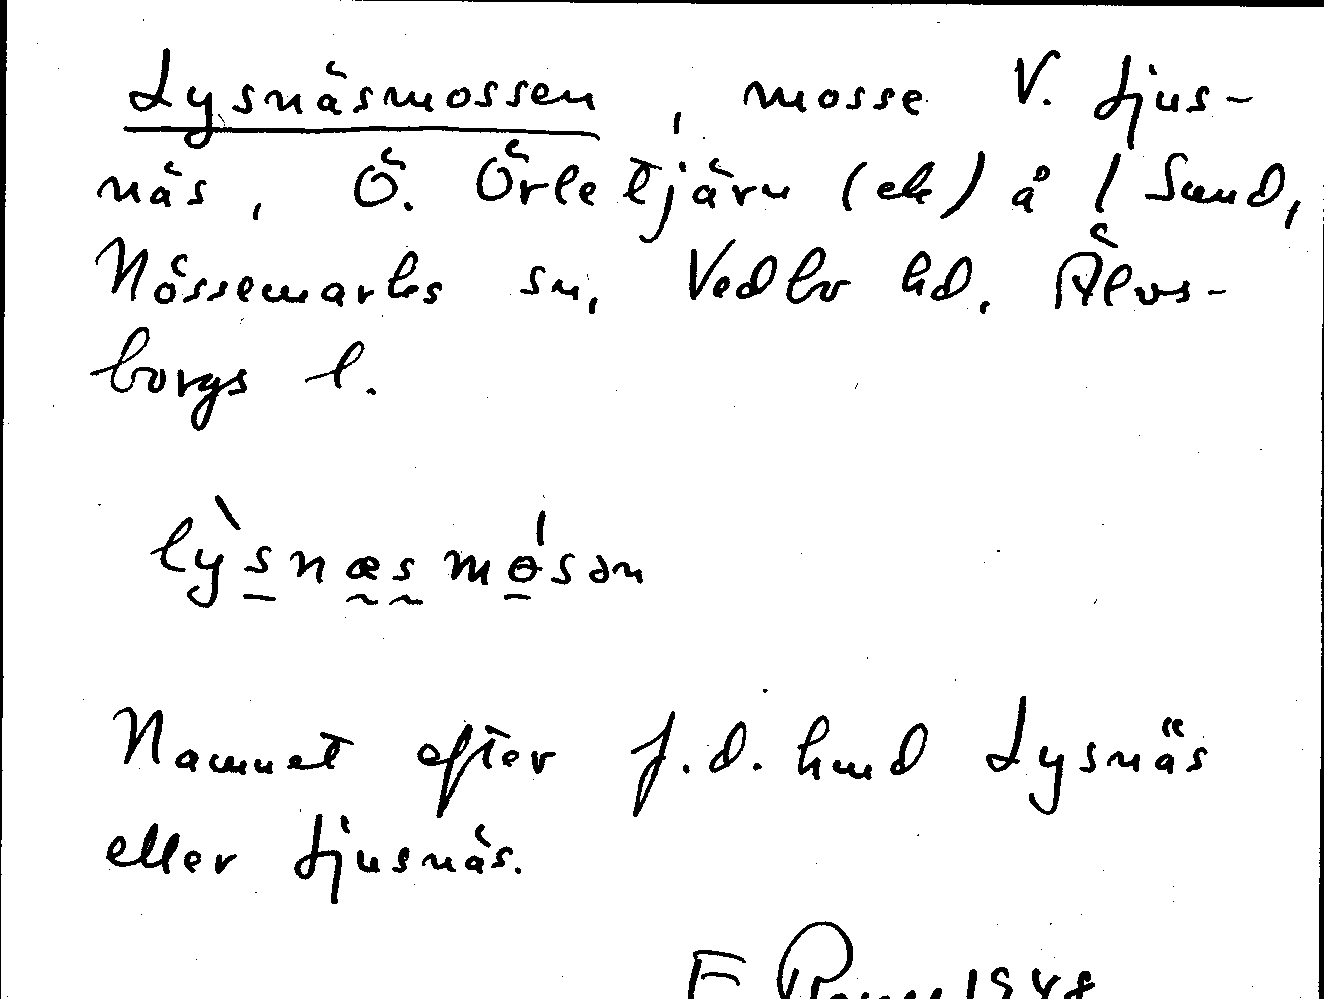 Lysnäsmossen, mosse V. Ljus-
näs, Ö. Örletjärn (ek) å 1 Sund,
Nössemarks sn, Vedbo hd. Älvs-
borgs l.
lỳsnæsmósən
Namnet efter f.d. hmd Lysnäs
eller Ljusnäs.
F 1948